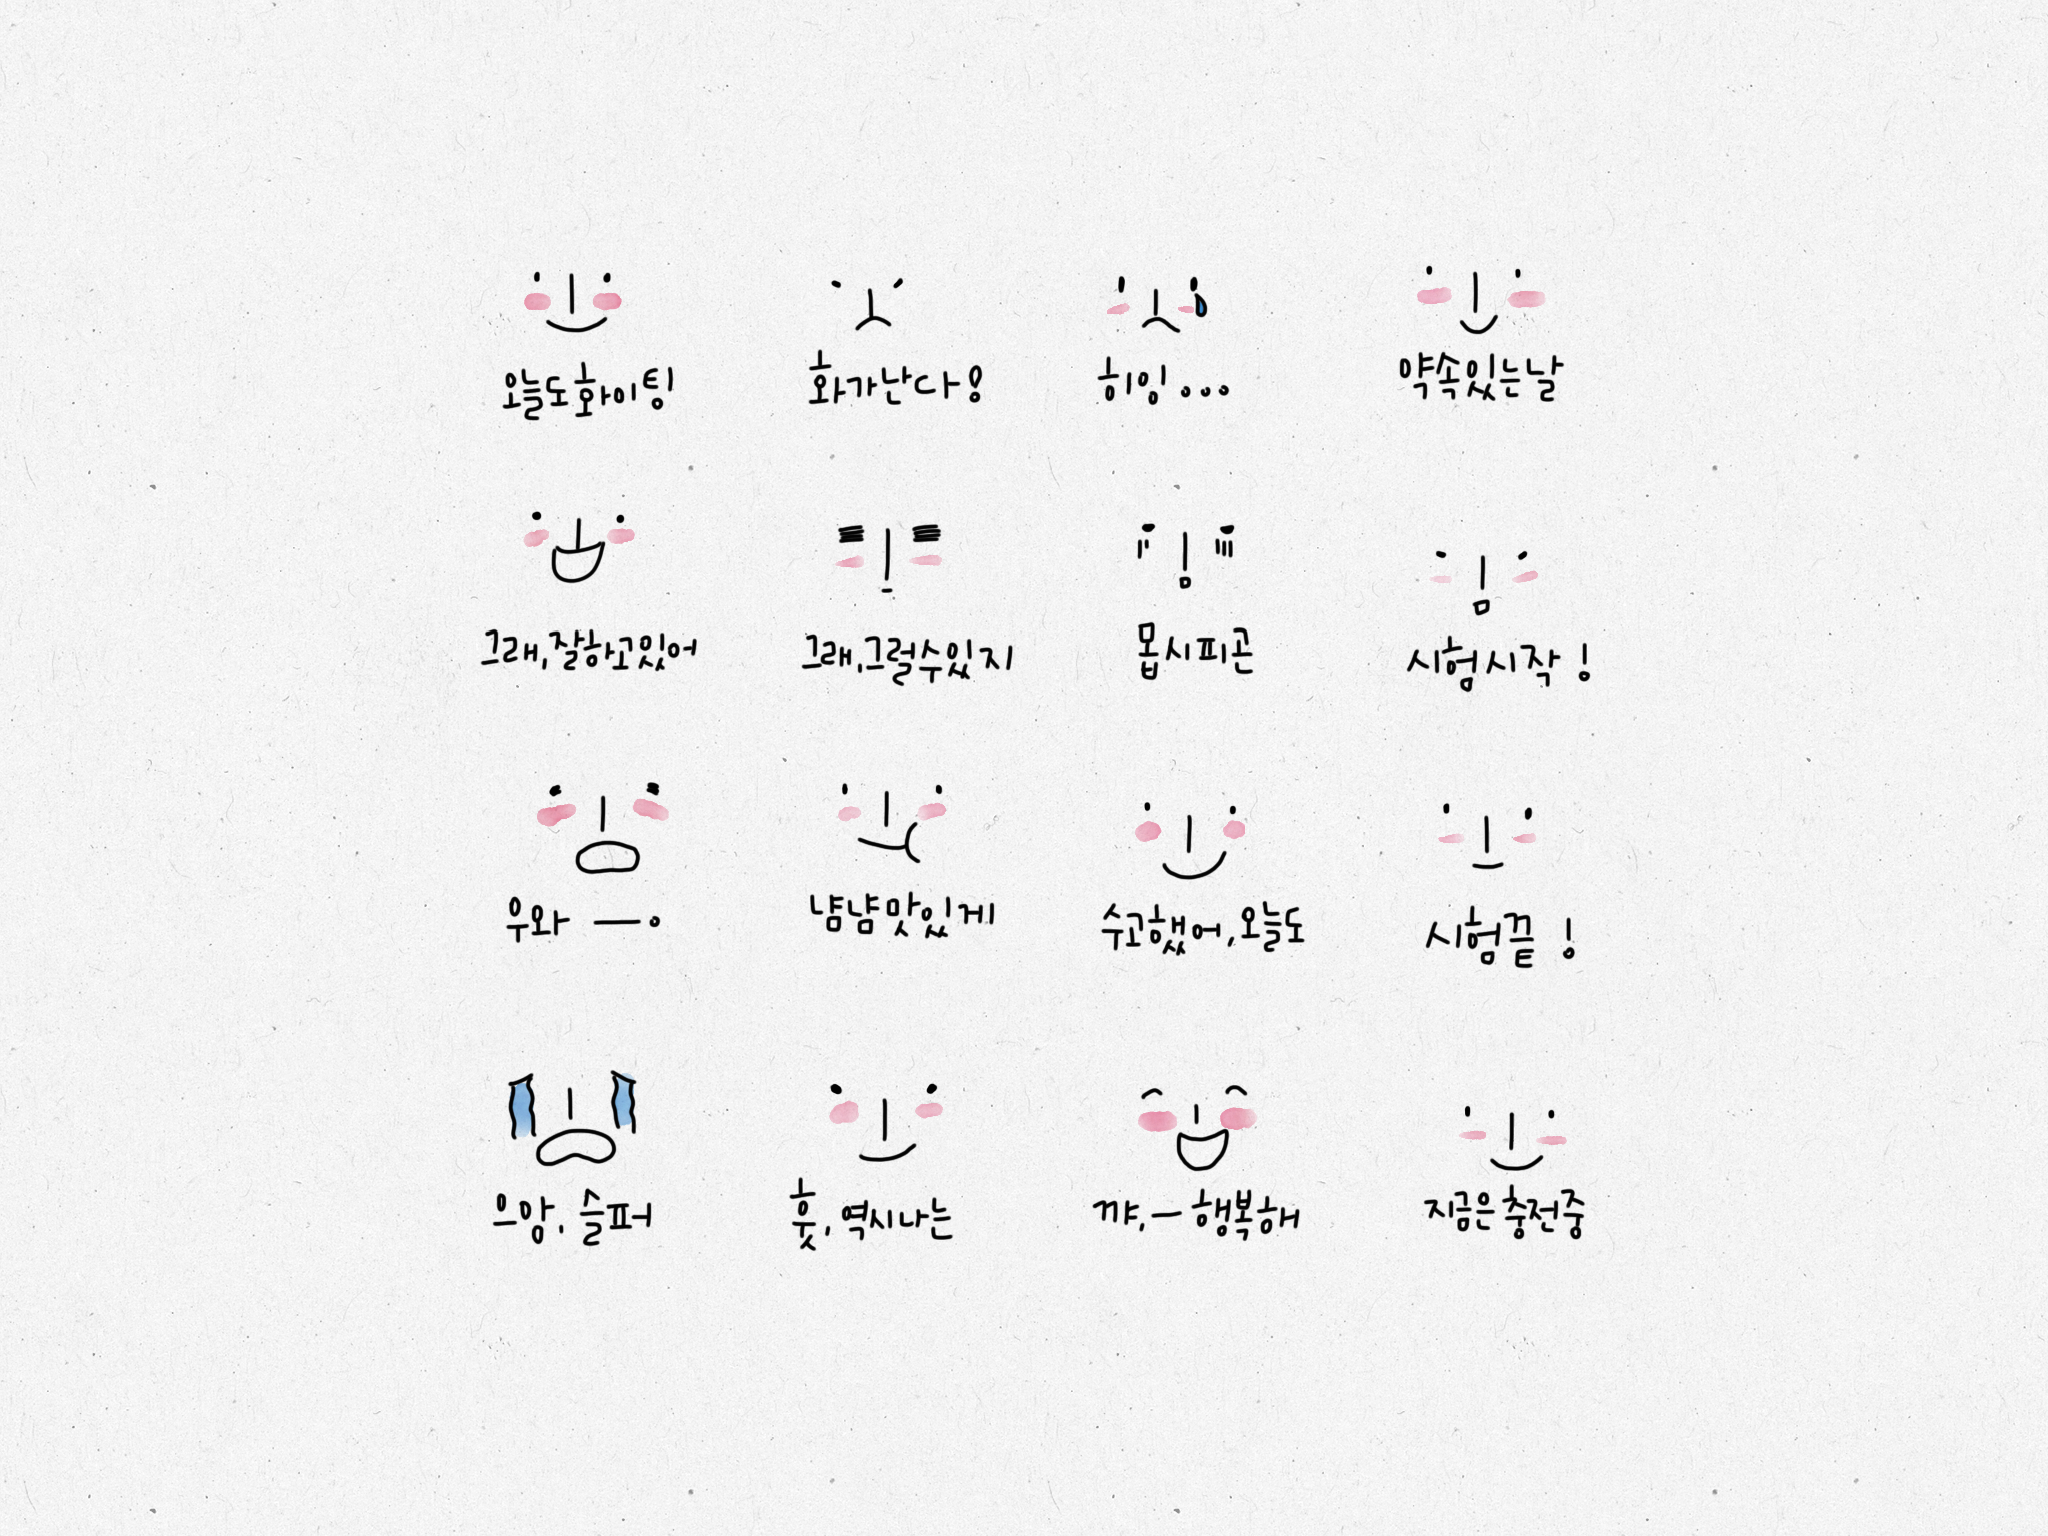 오늘도화이팅
화가난다!
히잉...
약속있는날
그래,잘하고있어
그래,그럴수있지
몹시피곤
시험시작!
우와 —.
냠냠맛있게
수고했어,오늘도
시험끝!
으앙, 슬퍼
훗, 역시나는
꺄,— 행복해
지금은충전중